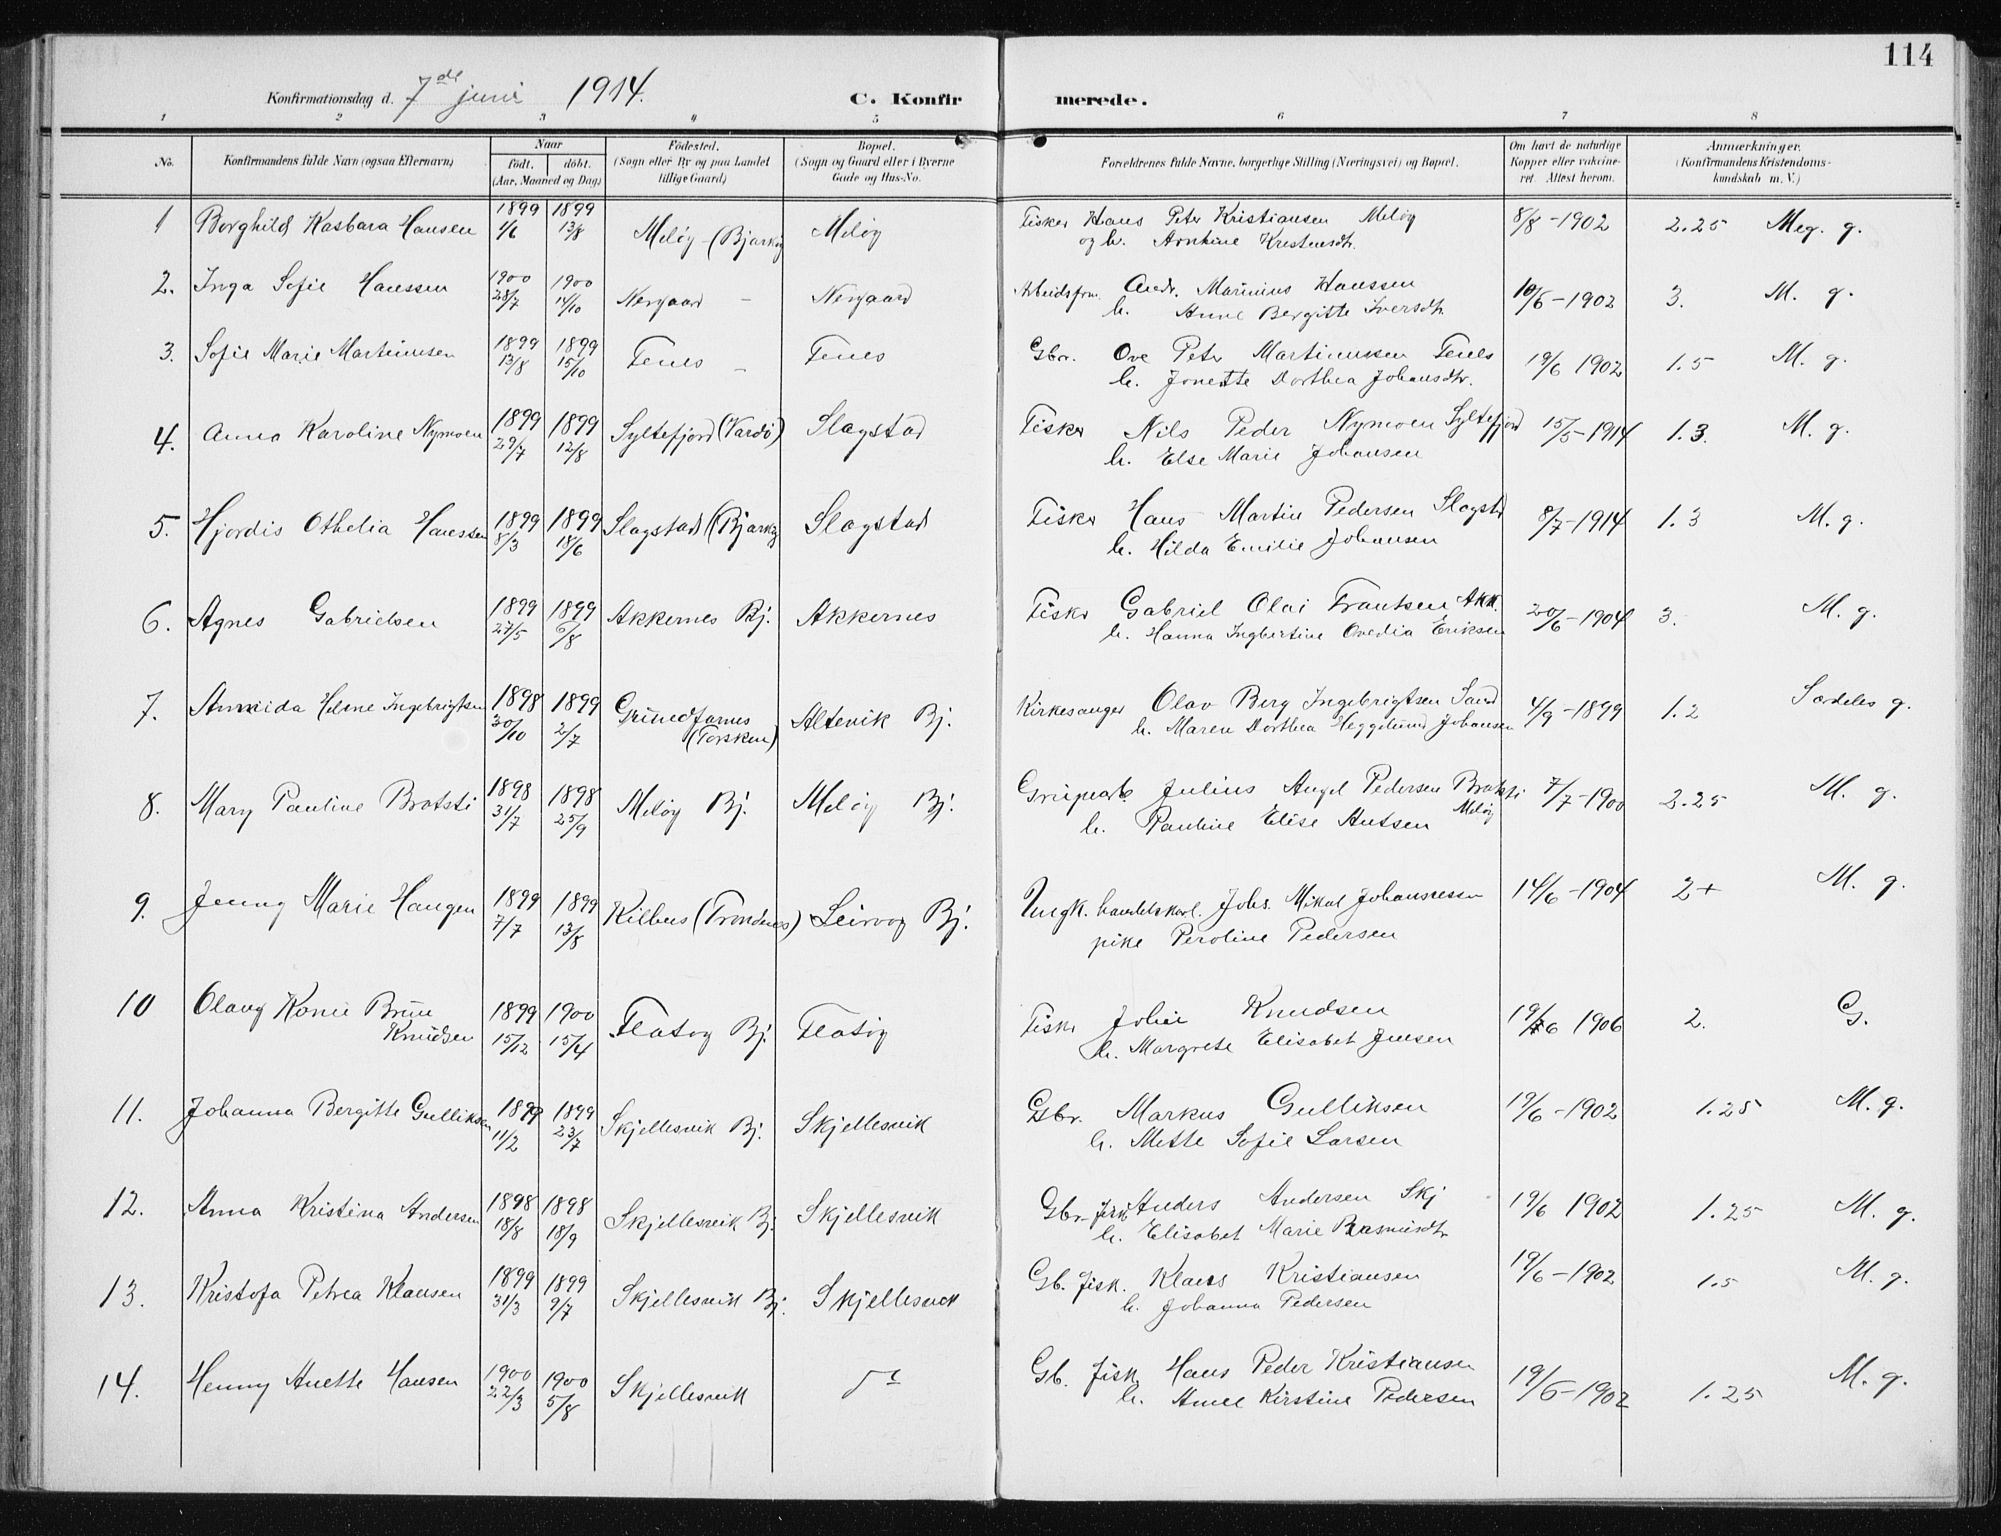 114
Konfirmationsdag d. 7de juni 1914. C. Konfirmerede.
1 2 3 4 5 6 7 8
No. Konfirmandens fulde Navn (ogsaa Efternavn) Naar født. døbt. (Aar, Maaned og Dag) Fødested. (Sogn eller By og paa Landet tillige Gaard) Bopæl. (Sogn og Gaard eller i Byerne Gade og Hus-No. Forældrenes fulde Navne, borgerlige Stilling (Næringsvei) og Bopæl. Om havt de naturlige Kopper eller vakcineret. Attest herom. Anmærkninger. (Konfirmandens Kristendomskundskab m. V.)
1 Borghild Kasbara Hansen 1899 1/6 1899 13/8 Meløy (Bjarkøy Meløy Fisker Hans Peter Kristiansen Meløy 8/8-1902 2.25 Meg. g.
og h. Arntine Kristensdt.
2. Inga Sofie Hanssen 1900 28/7 1900 14/10 Nergaard - Nergaard Arbeidsfrm. Andr. Marinius Hanssen 10/6-1902 3. M. g.
h. Anne Bergitte Iversdtr.
3. Sofie Marie Martinussen 1899 13/8 1899 15/10 Fenes - Fenes Gbr. Ove Peter Martinussen Fenes 19/6 1902 1.5 M. g.
h. Jonette Dorthea Johansdtr.
4. Anna Karoline Nymoen 1899 29/7 1899 12/8 Syltefjord (Vardö) Slagstad Fisker Nils Peder Nymoen Syltefjord 15/5-1914 1.3. M. g.
h. Else Marie Johansen
5. Hjordis Othelia Hanssen 1899 8/3 1899 18/6 Slagstad (Bjarkøy Slagstad Fisker Hans Martin Pedersen Slagstd 8/7-1914 1.3 M. g.
h. Hilda Emilie Johansen
6. Agnes Gabrielsen 1899 27/5 1899 6/8 Akkernes Bj. Akkernes Fisker Gabriel Olai Frantsen Akk. 20/6-1904 3. M. g.
h. Hanna Ingbertine Ovedia Eriksen
7. Helene Ingebrigtsen 1898 30/10 1899 2/7 (Torsken) Altevik Bj. Kirkesanger Olav Berg Ingebrigtsen Sand 4/9-1899 1.2 Særdeles g.
h. Maren Dorthea Heggelund Johansen
8. Mary Pauline Bratsti 1898 31/7 1898 25/9 Meløy Bj. Meløy Bj. Grupearb. Julius Angel Pedersen Bratsti Meløy 7/7-1900 2.25 M. g.
h. Pauline Elise Antsen
9. Jenny Marie Haugen 1899 7/7 1899 13/8 Kilbus (Trondenes) Leirvog Bj. Ungk. handelskarl. Johs. Mikal Johannessen 14/6-1904 2+ M. g.
pike Peroline Pedersen
10 Olaug Konie Brun Knudsen 1899 15/12 1900 15/4 Flatøy Bj. Flatøy Fisker Johan Knudsen 19/6 1906 2. G.
h. Margrete Elisabet Jensen
11. Johanna Bergitte Gulliksen 1899 11/2 1899 23/7 Skjellesvik Bj. Skjellesvik Gbr. Markus Gulliksen 19/6-1902 1.25 M. g.
h. Mette Sofie Larsen
12. Anna Kristina Andersen 1898 18/8 1898 18/9 Skjellesvik Bj. Skjellesvik Gbr. fisk Anders Andersen Skj 19/6 1902 1.25 M. g.
h. Elisabet Marie Rasmusdtr
13. Kristofa Petrea Klausen 1899 31/3 1899 9/7 Skjellesvik Bj. Skjellesvik Gb. fisk. Klaus Kristiansen 19/6-1902 1.5 M. g.
h. Johanna Pedersen
14. Henny Anette Hansen 1900 22/3 1900 5/8 Skjellesvik do Gb. fisk Hans Peder Kristiansen 19/6-1902 1.25 M. g.
h. Anne Kirstine Pedersen